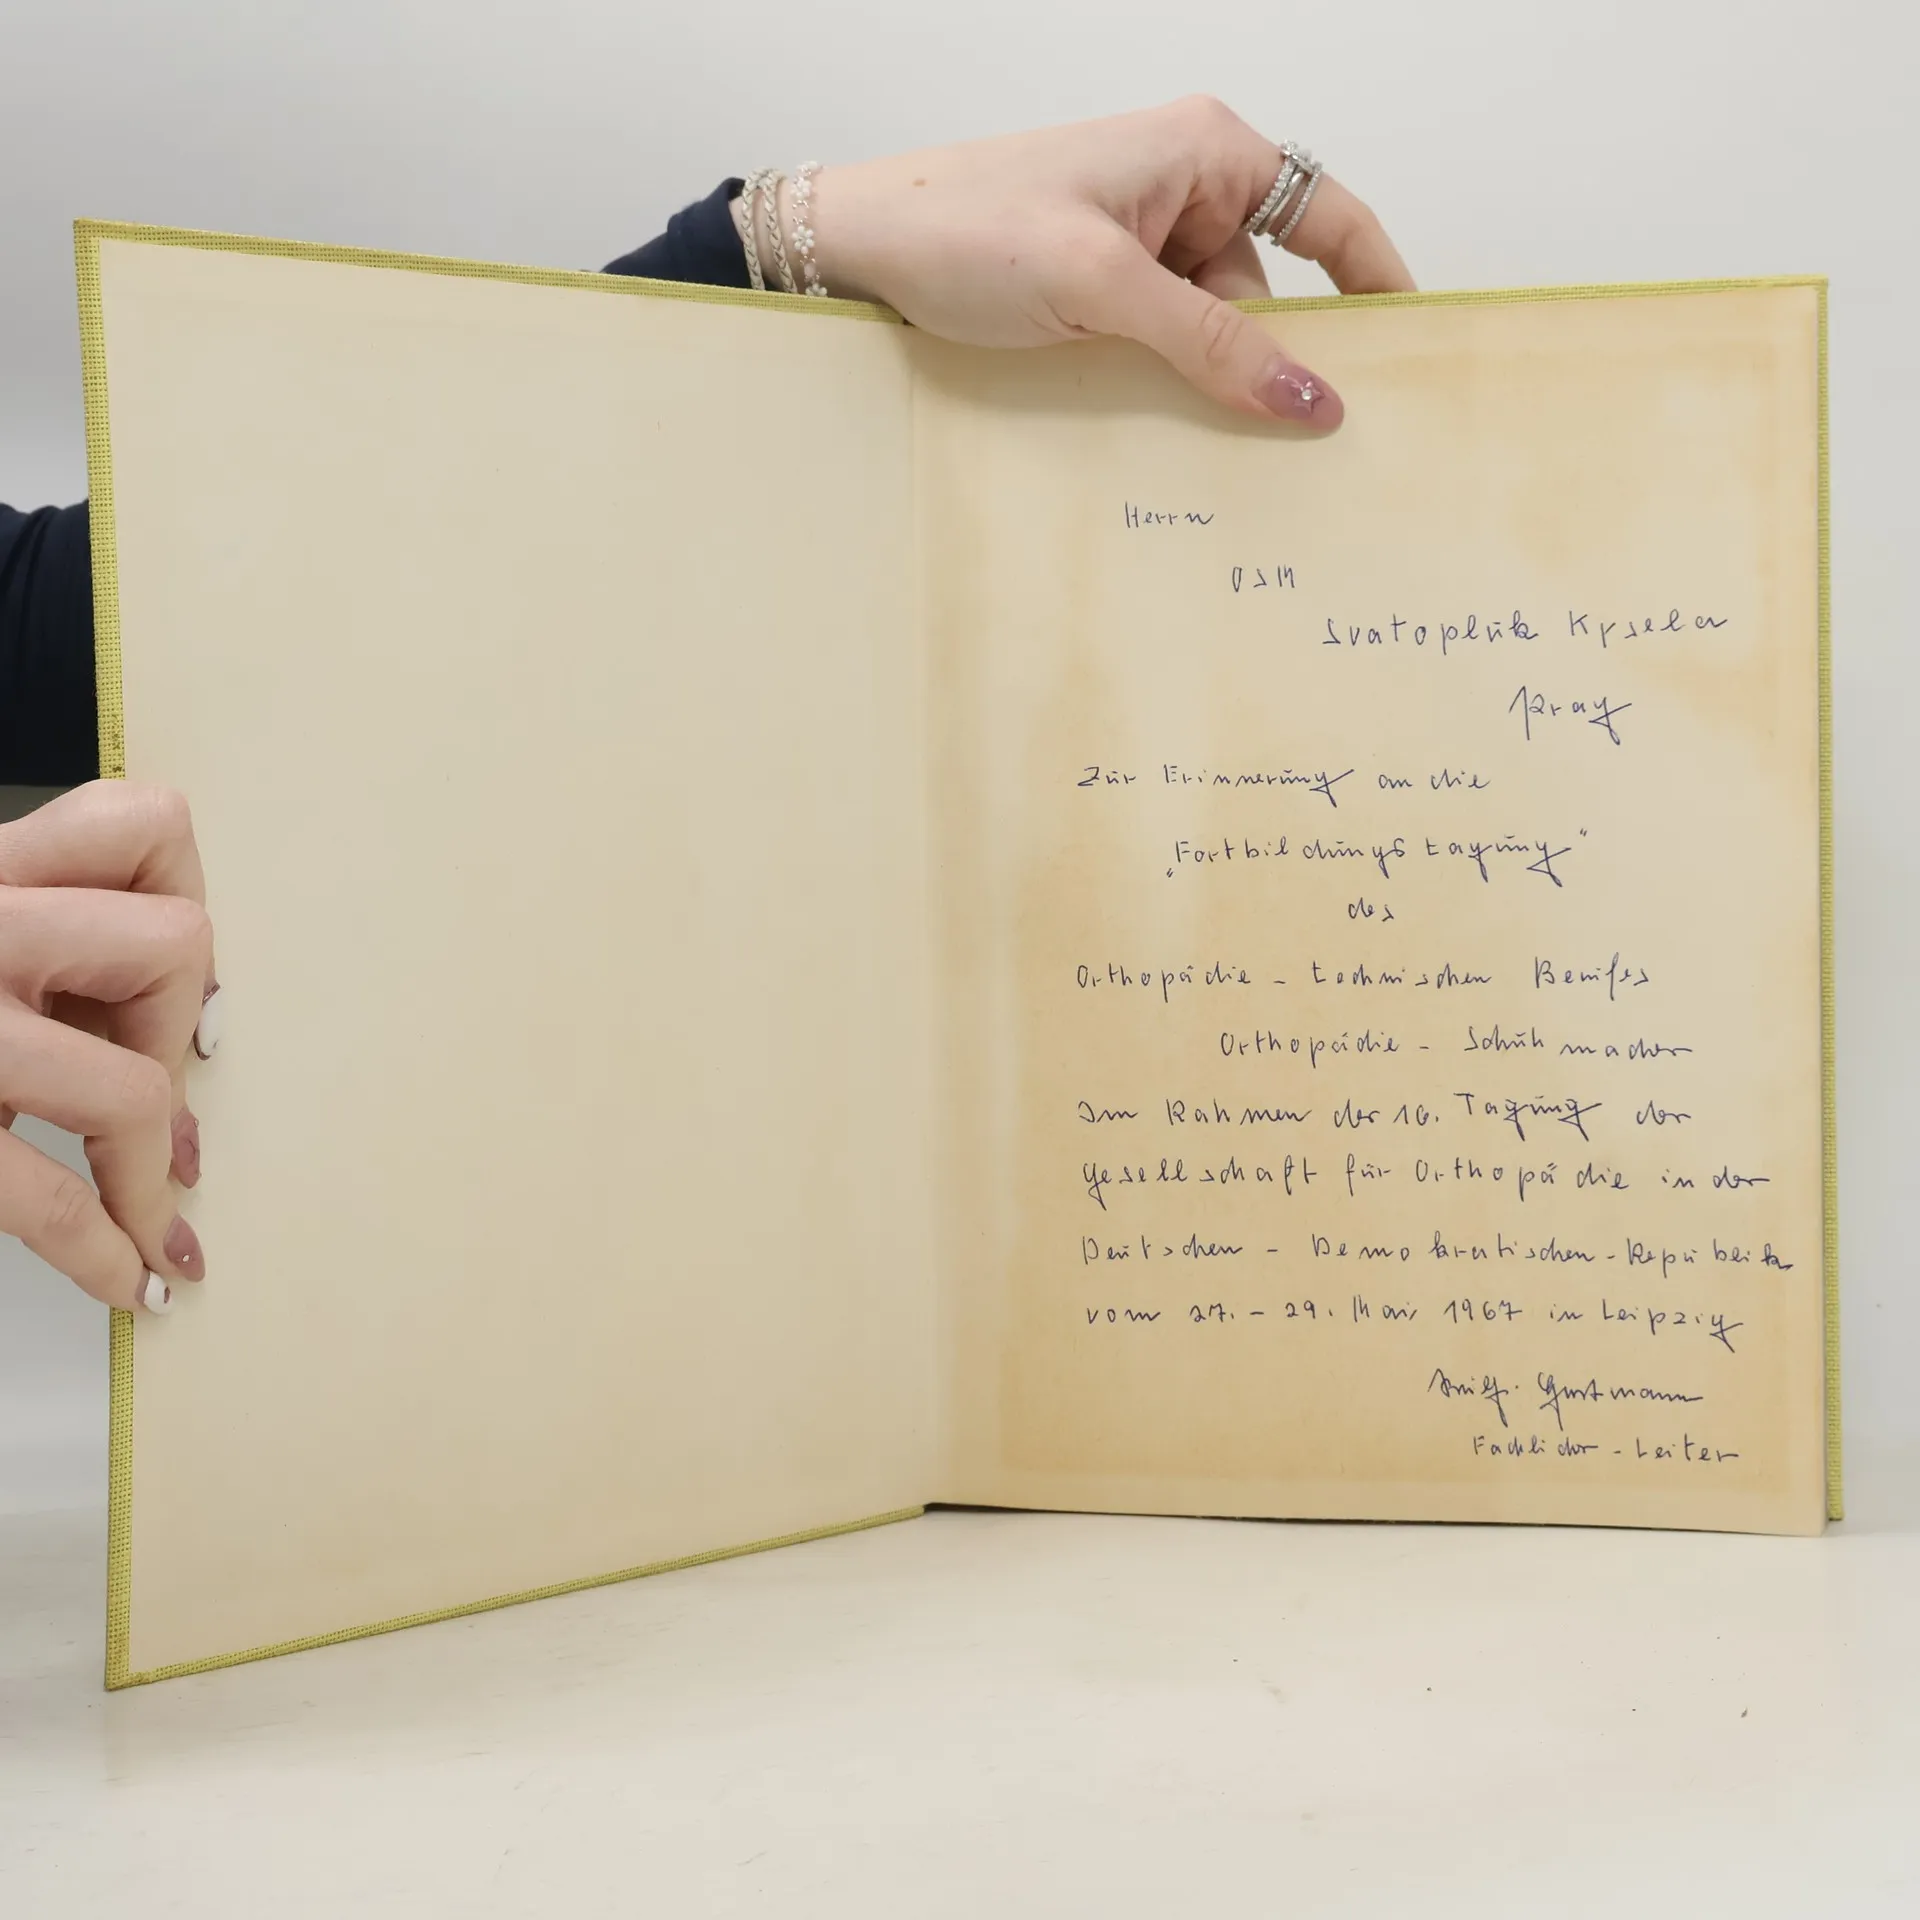 Herrn
OSM
Svatopluk Kysela
Prag
Zur Erinnerung an die
„Fortbildungstagung"
des
Orthopädie - technischen Berufes
Orthopädie - Schuhmacher
Im Rahmen der 16. Tagung der
Gesellschaft für Orthopädie in der
Deutschen - Demokratischen - Republik
vom 27. - 29. Mai 1967 in Leipzig
Gustmann
Fachlicher - Leiter